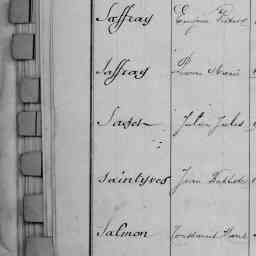 Saffray Eugène Victor
Saffray Pierre Marie
Sases Julien Jules
Saintyves Jean Baptiste
Salmon Toussaint Marie